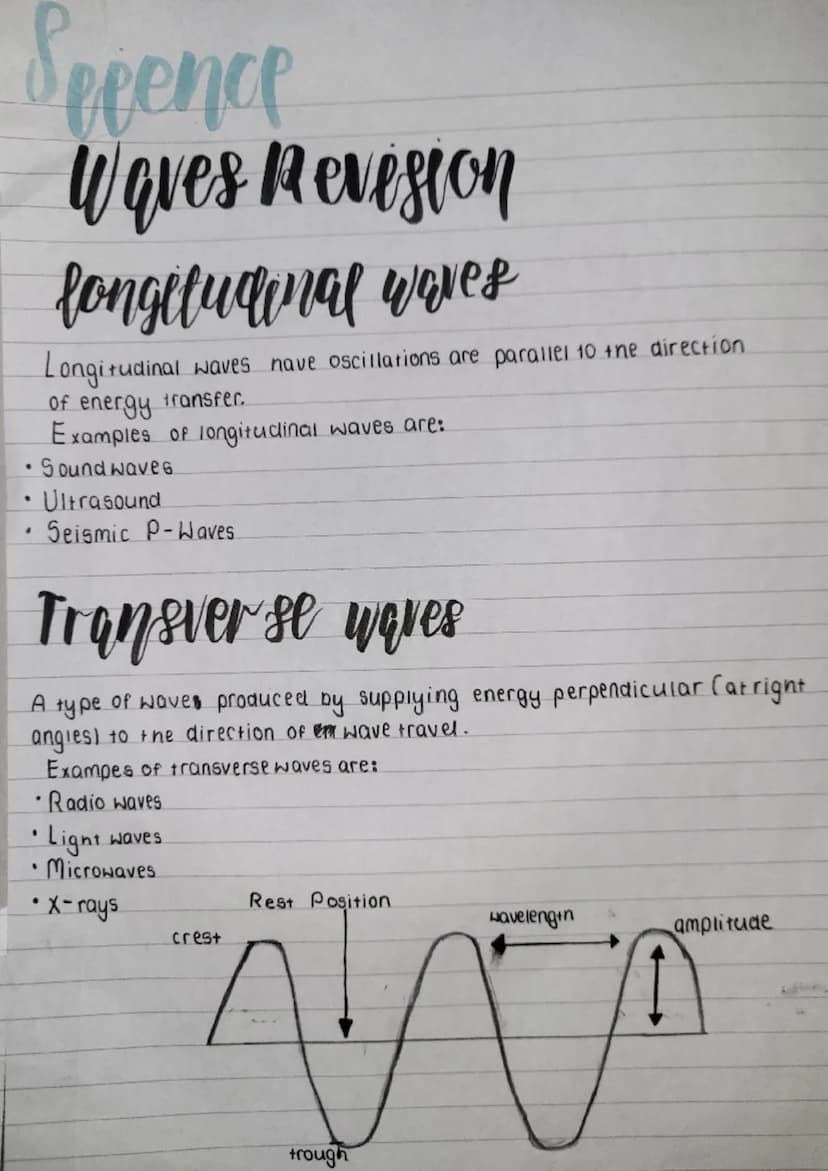 Science
Waves Revision
longitudinal waves
Longitudinal waves have oscillations are parallel to the direction
of energy transfer.
Examples of longitudinal waves are:
• Soundwaves
• Ultrasound
• Seismic P-Waves
Transverse waves
A type of waves produced by supplying energy perpendicular (at right
angles) to the direction of wave travel.
Exampes of transverse waves are:
• Radio waves
• Light waves
• Microwaves
• X-rays
Rest Position
wavelength
amplitude
crest
trough